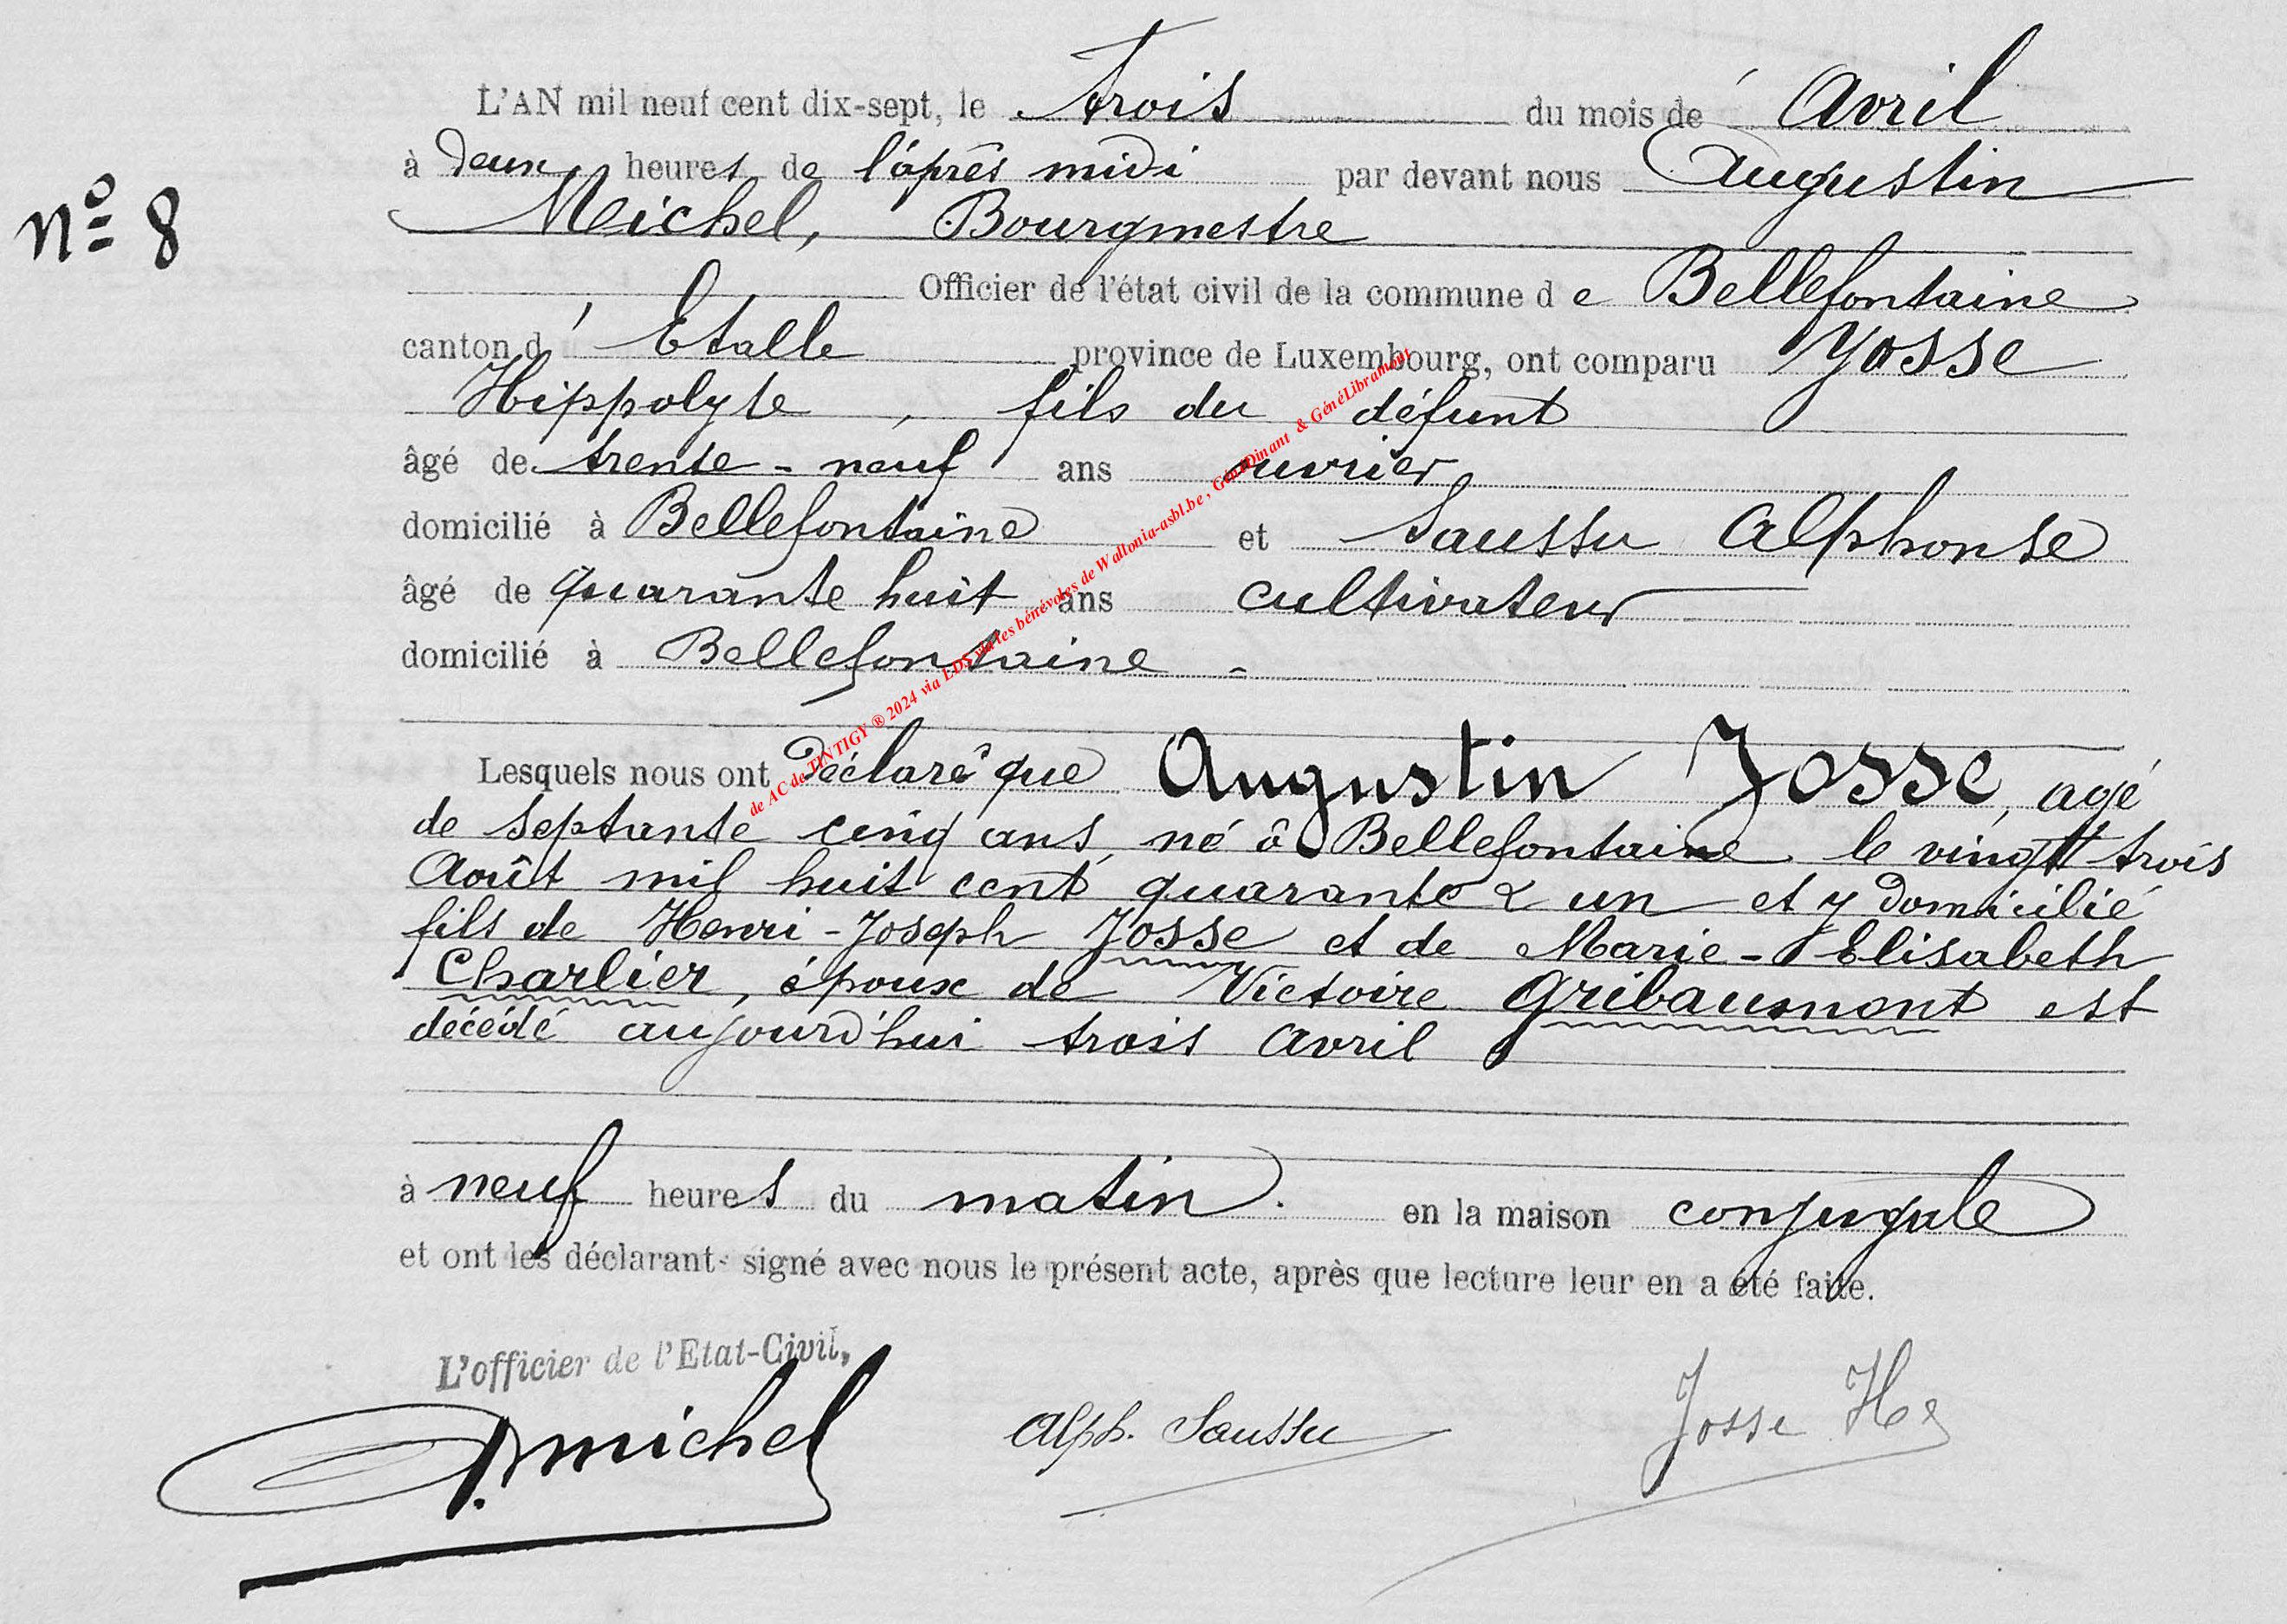 L'AN mil neuf cent dix-sept, le trois du mois de Avril
à deux heures de l'après midi par devant nous Augustin
Michel, Bourgmestre
N° 8
Officier de l'état civil de la commune de Bellefontaine
canton d' Etalle province de Luxembourg, ont comparu Josse
Hippolyte, fils du défunt
âgé de trente-neuf ans ouvrier
domicilié à Bellefontaine et Saussu Alphonse
âgé de quarante huit ans cultivateur
domicilié à Bellefontaine -
de AC de TINTIGY ® 2024 via LDS via les bénévoles de Wallonia-asbl.be, GénéDinant & GénéLibramont
Lesquels nous ont déclaré que Augustin Josse, agé
de septante cinq ans, né à Bellefontaine le vingt trois
Août mil huit cent quarante & un et y domicilié
fils de Henri-Joseph Josse et de Marie-Elisabeth
Charlier, époux de Victoire Gribaumont est
décédé aujourd'hui trois Avril
à neuf heures du matin. en la maison conjugale
et ont les déclarants signé avec nous le présent acte, après que lecture leur en a été faite.
L'officier de l'Etat-Civil,
A. Michel Alph. Saussu Josse Hte